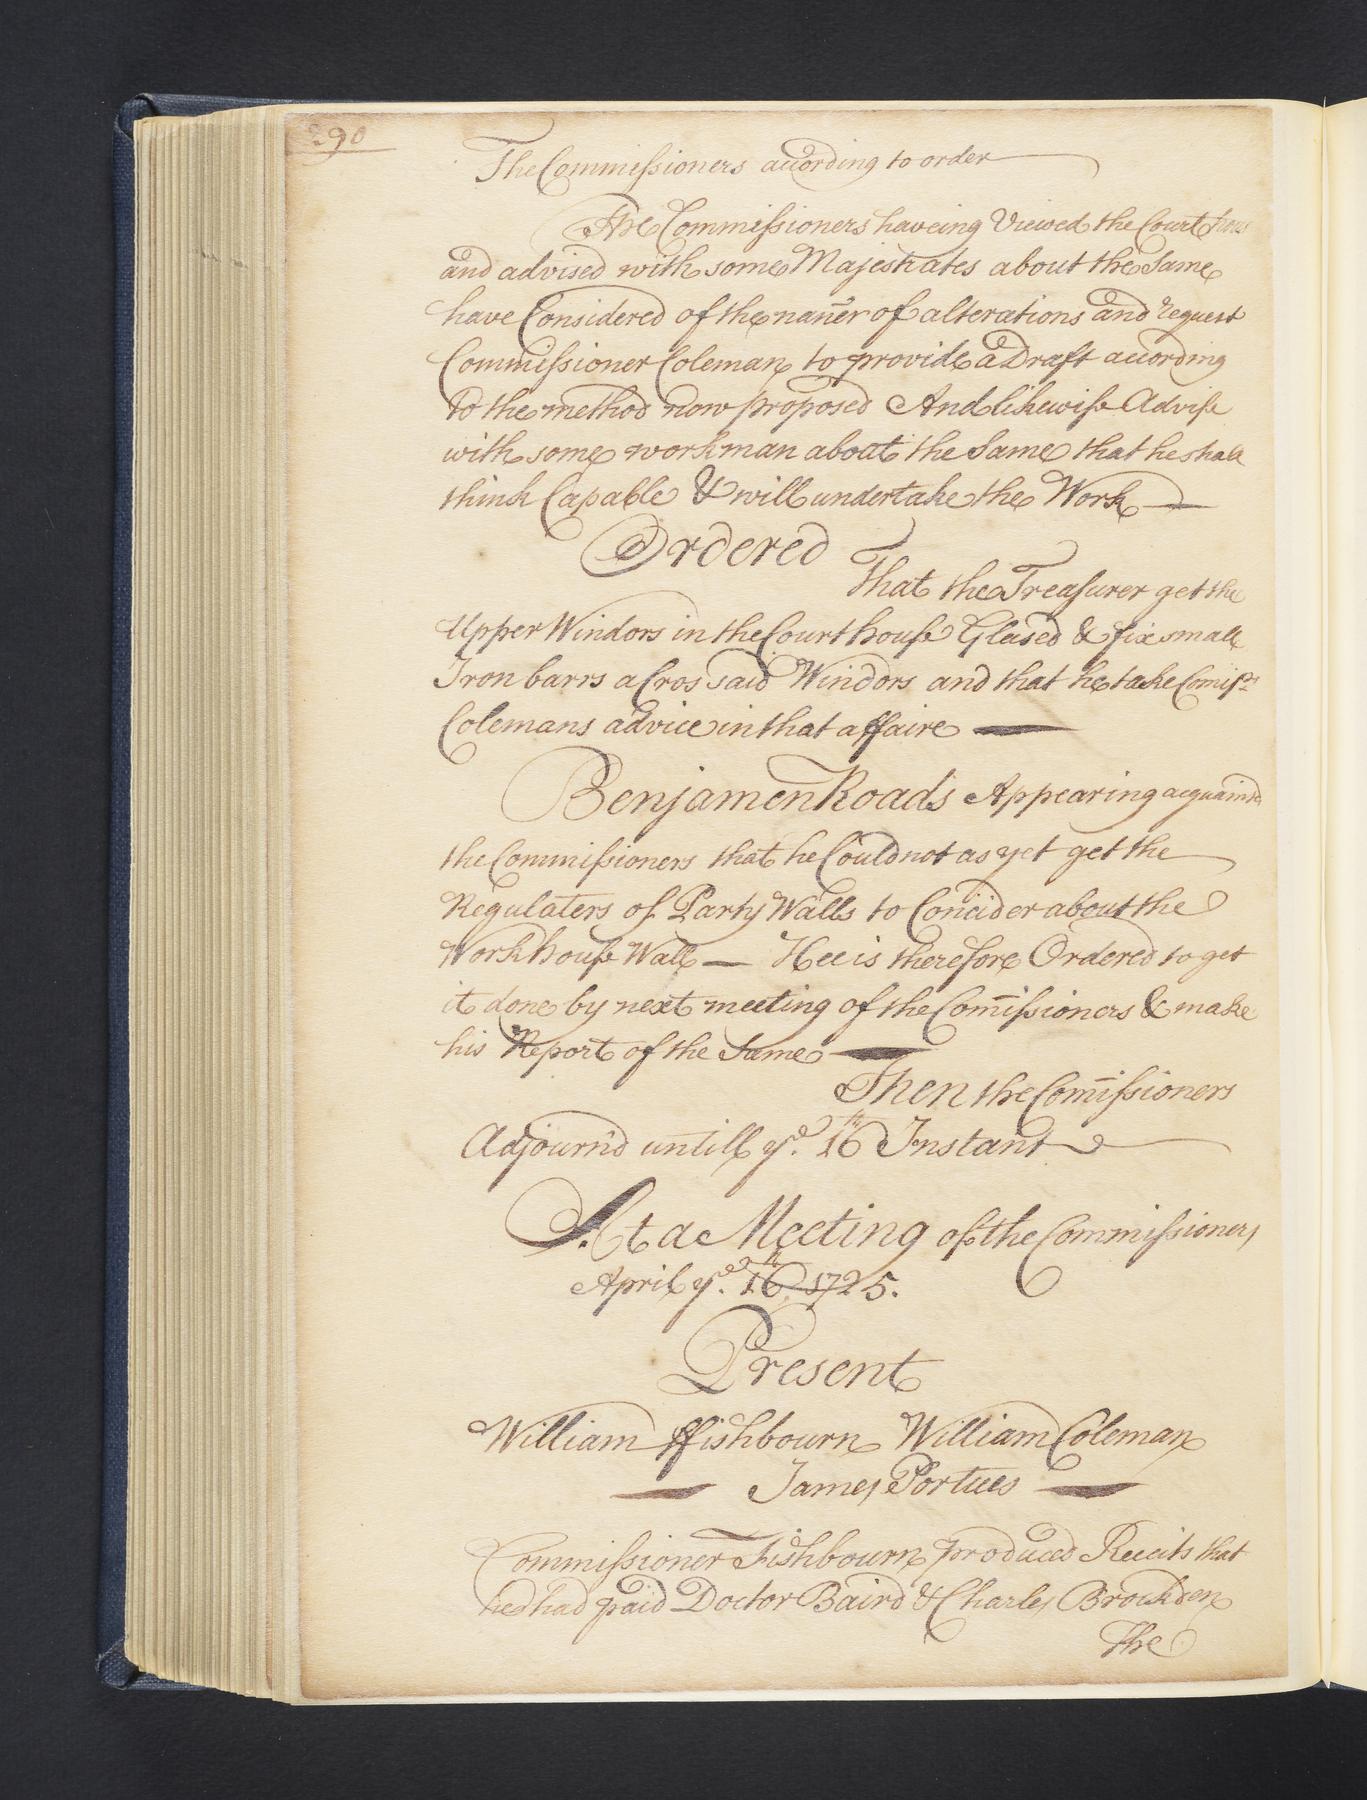 290
The Commissioners acording to order
The Commissioners haveing Viewed the Court hous
and advised with some Majestrates about the Same
have Considered of the maner of alterations and request
Commissioner Coleman to provide a Draft acording
to the method now proposed And likewise Advise
with some workman about the Same that he shall
think Capable & will undertake the Work
Ordered
That the Treasurer get the
Upper Windors in the Court house Glased & fix small
Iron barrs a Cros said Windors and that he take Comissrs
Colemans advice in that affaire
Benjamen Roads Appearing acquainted
the Commissioners that he Could not as yet get the
Regulaters of Party Walls to Concider about the
Work house Wall — Hee is therefore Ordered to get
it done by next meeting of the Com̄issioners & make
his Report of the Same
Then the Com̄issioners
Adjourn'd untill ye. 16th Instant
At a Meeting of the Commissioners
April ye. 16th 1725.
Present
William ffishbourn William Coleman
— James Portues —
Commissioner Fishbourn produced Receits that
hed had paid Doctor Baird & Charles Brockden
The